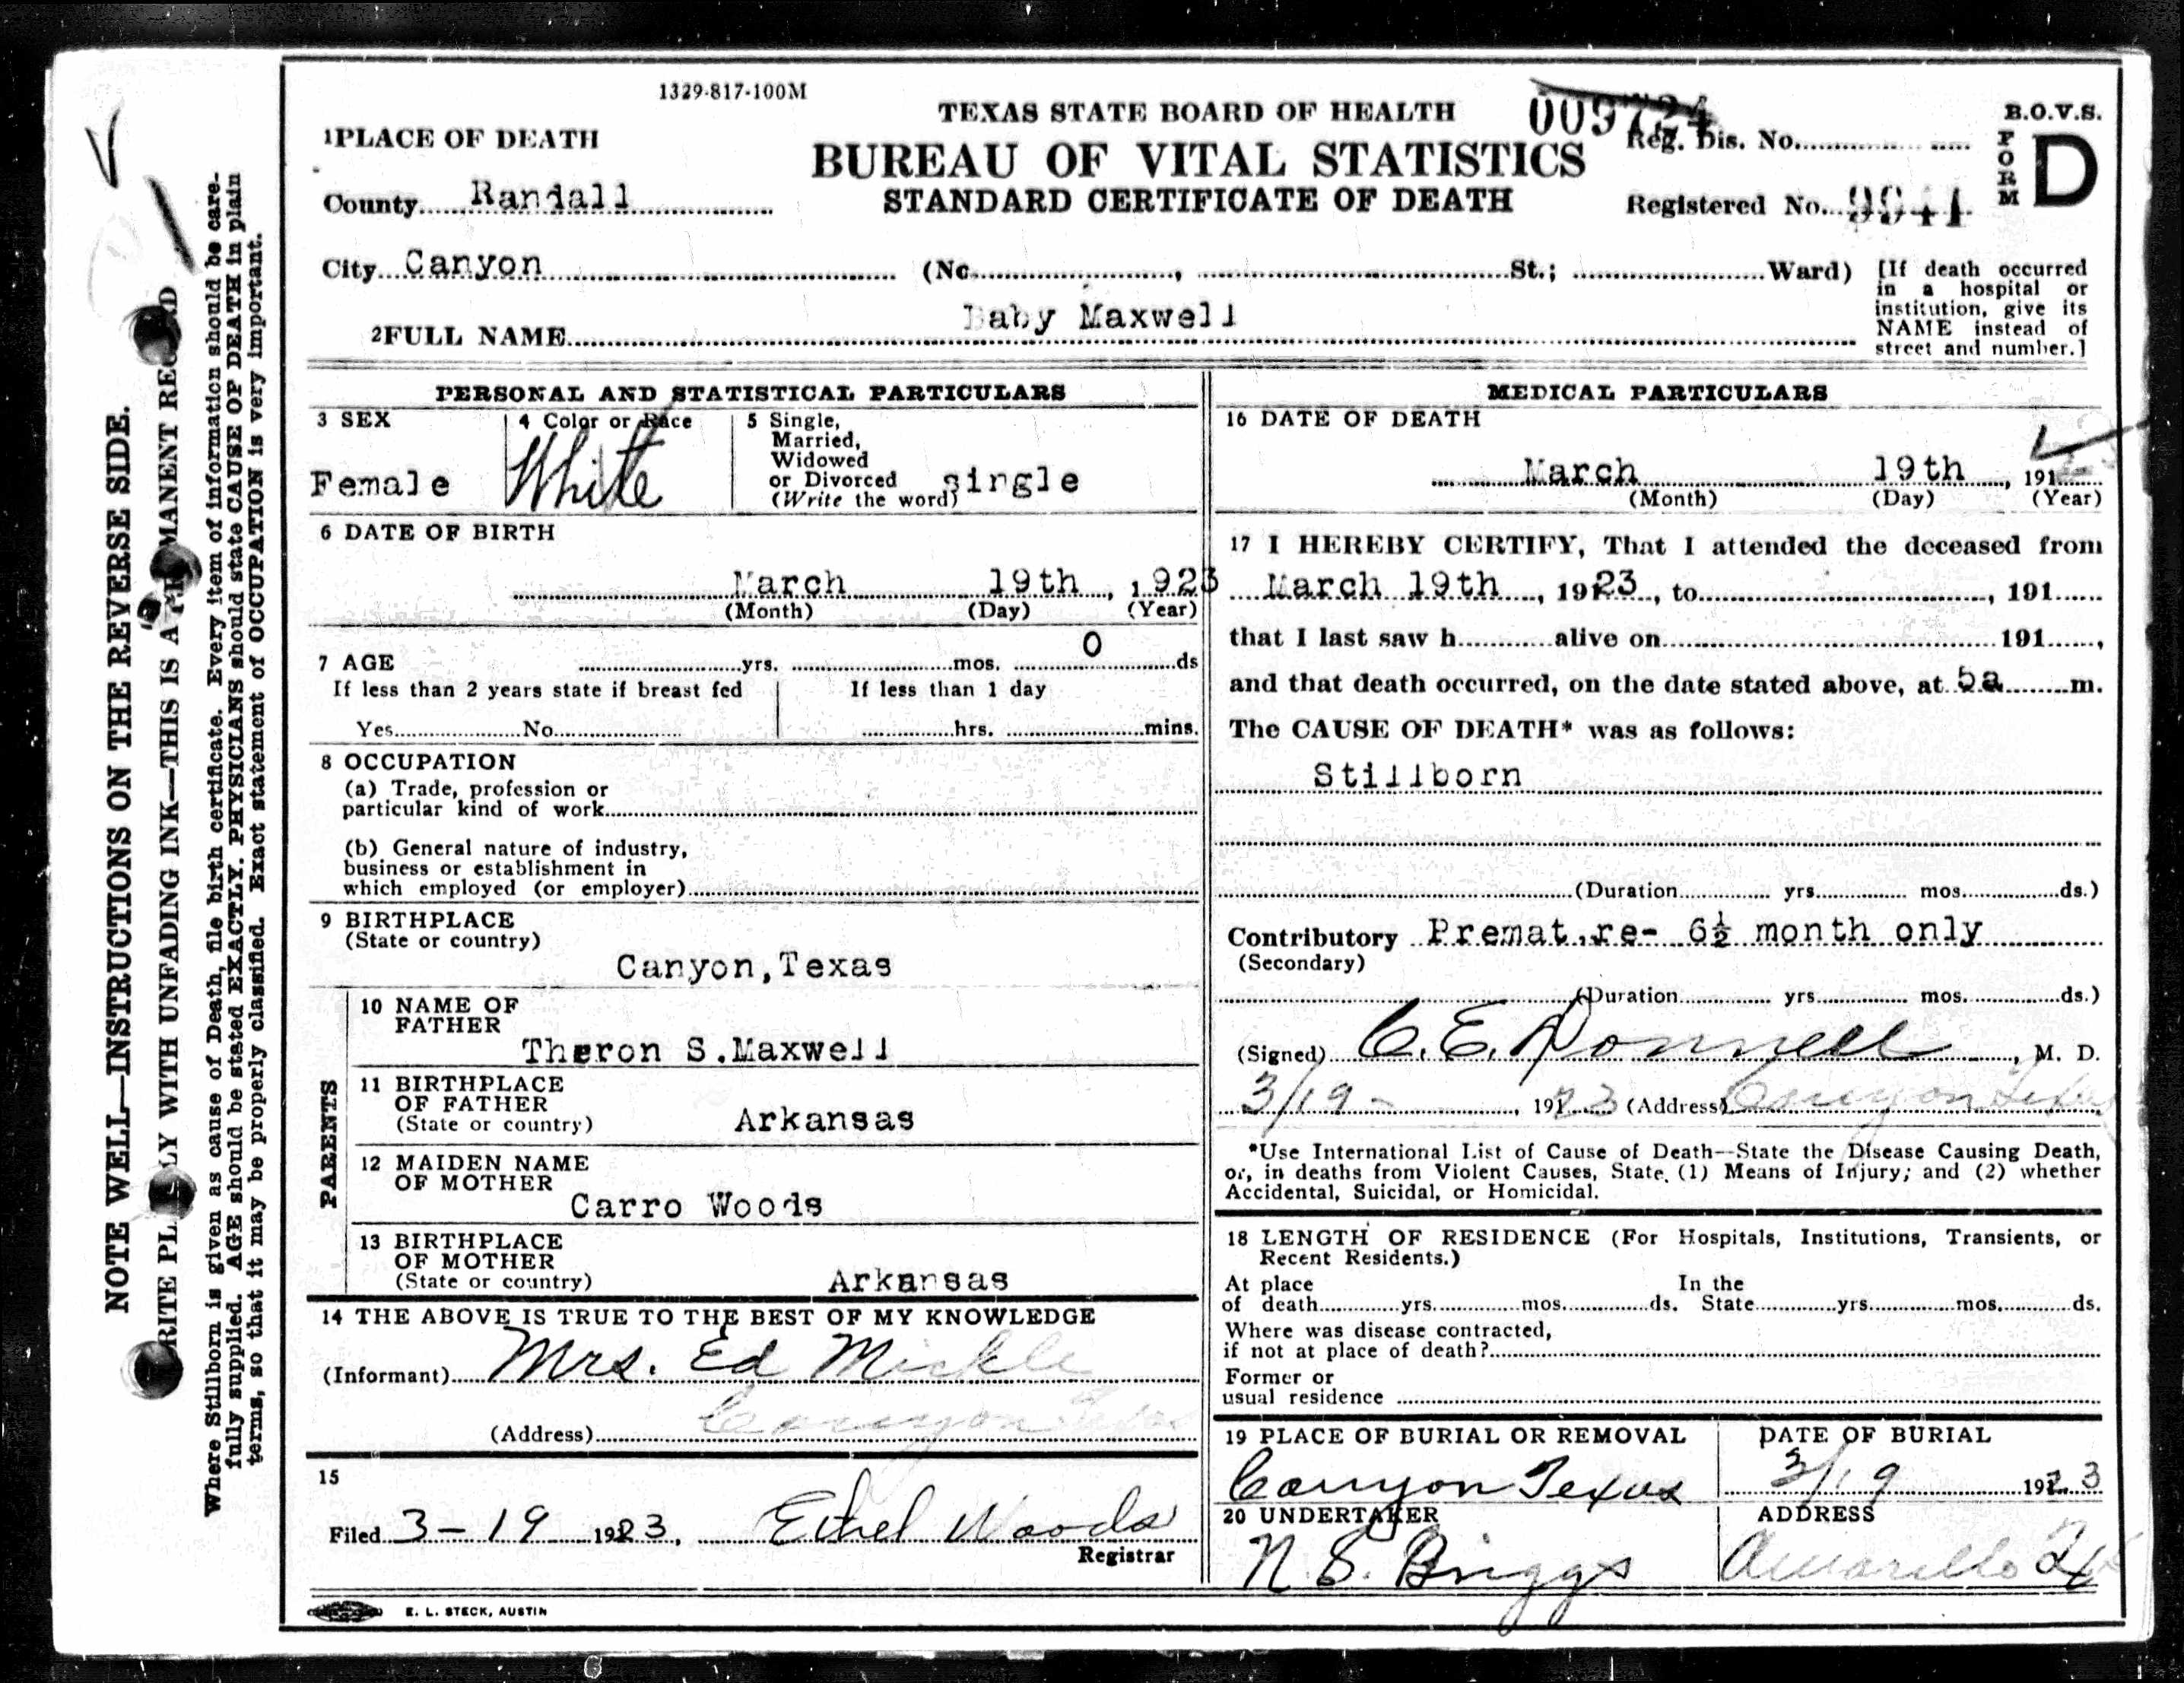 1329-817-100M
TEXAS STATE BOARD OF HEALTH
009724
Reg. Dis. No.
B.O.V.S.
FORM D
1PLACE OF DEATH
BUREAU OF VITAL STATISTICS
County Randall
STANDARD CERTIFICATE OF DEATH
Registered No.
City Canyon (No. , St.; Ward)
[If death occurred
in a hospital or
institution, give its
NAME instead of
street and number.]
2FULL NAME Baby Maxwell
PERSONAL AND STATISTICAL PARTICULARS
3 SEX
Female
4 Color or Race
White
5 Single,
Married,
Widowed
or Divorced
(Write the word) single
6 DATE OF BIRTH
March 19th , 1923
(Month) (Day) (Year)
7 AGE yrs. mos. 0 ds
If less than 2 years state if breast fed
Yes No
If less than 1 day
hrs. mins.
8 OCCUPATION
(a) Trade, profession or
particular kind of work
(b) General nature of industry,
business or establishment in
which employed (or employer)
9 BIRTHPLACE
(State or country)
Canyon,Texas
PARENTS
10 NAME OF
FATHER
Theron S.Maxwell
11 BIRTHPLACE
OF FATHER
(State or country) Arkansas
12 MAIDEN NAME
OF MOTHER
Carro Woods
13 BIRTHPLACE
OF MOTHER
(State or country) Arkansas
14 THE ABOVE IS TRUE TO THE BEST OF MY KNOWLEDGE
(Informant) Mrs. Ed Mickle
(Address) Canyon Texas
15
Filed 3-19 1923, Ethel Woods
Registrar
E. L. STECK, AUSTIN
MEDICAL PARTICULARS
16 DATE OF DEATH
March 19th , 191
(Month) (Day) (Year)
17 I HEREBY CERTIFY, That I attended the deceased from
March 19th , 1923, to , 191
that I last saw h alive on 191 ,
and that death occurred, on the date stated above, at 5a m.
The CAUSE OF DEATH* was as follows:
Stillborn
(Duration yrs. mos. ds.)
Contributory Premat.re- 6½ month only
(Secondary)
(Duration yrs. mos. ds.)
(Signed) C. E. Donnell , M. D.
3/19- , 1923 (Address) Canyon Texas
*Use International List of Cause of Death--State the Disease Causing Death,
or, in deaths from Violent Causes, State (1) Means of Injury; and (2) whether
Accidental, Suicidal, or Homicidal.
18 LENGTH OF RESIDENCE (For Hospitals, Institutions, Transients, or
Recent Residents.)
At place In the
of death yrs. mos. ds. State yrs. mos. ds.
Where was disease contracted,
if not at place of death?
Former or
usual residence
19 PLACE OF BURIAL OR REMOVAL
Canyon Texas
DATE OF BURIAL
3/19 1923
20 UNDERTAKER
N. S. Briggs
ADDRESS
Amarillo Tx
NOTE WELL—INSTRUCTIONS ON THE REVERSE SIDE.
RITE PL LY WITH UNFADING INK—THIS IS A PERMANENT RECORD
Where Stillborn is given as cause of Death, file birth certificate. Every item of information should be care-
fully supplied. AGE should be stated EXACTLY. PHYSICIANS should state CAUSE OF DEATH in plain
terms, so that it may be properly classified. Exact statement of OCCUPATION is very important.